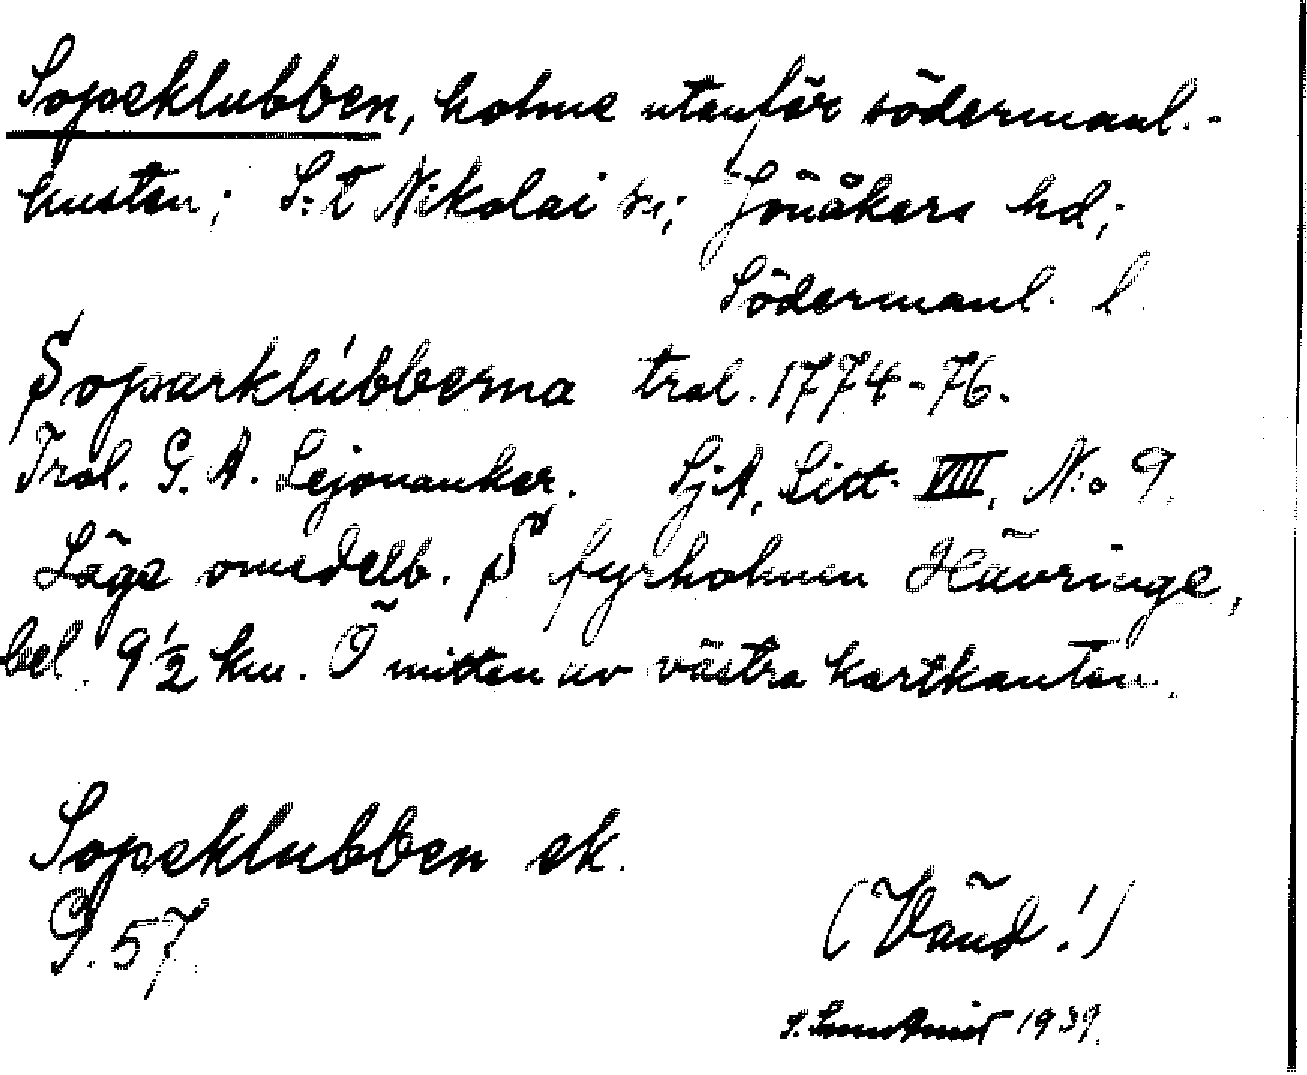 Sopeklubben, holme utanför södermanl.-
kusten; S:t Nikolai sn; Jönåkers hd;
Södermanl. l.
Soparklubberna tral. 1774-76.
Tral. G. A. Lejonanker. SjA, Litt. VIII, N:o 9.
Läge omedelb. S fyrholmen Hävringe,
bel. 9 1/2 km. Ö mitten av västra kartkanten.
Sopeklubben ek.
G. 57.
(Vänd!)
1939.